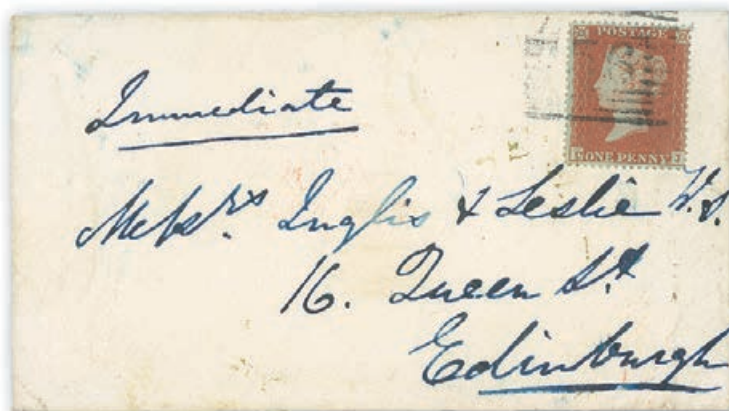 POSTAGE
ONE PENNY
Immediate
Messrs Inglis & Leslie W.S.
16. Queen St
Edinburgh